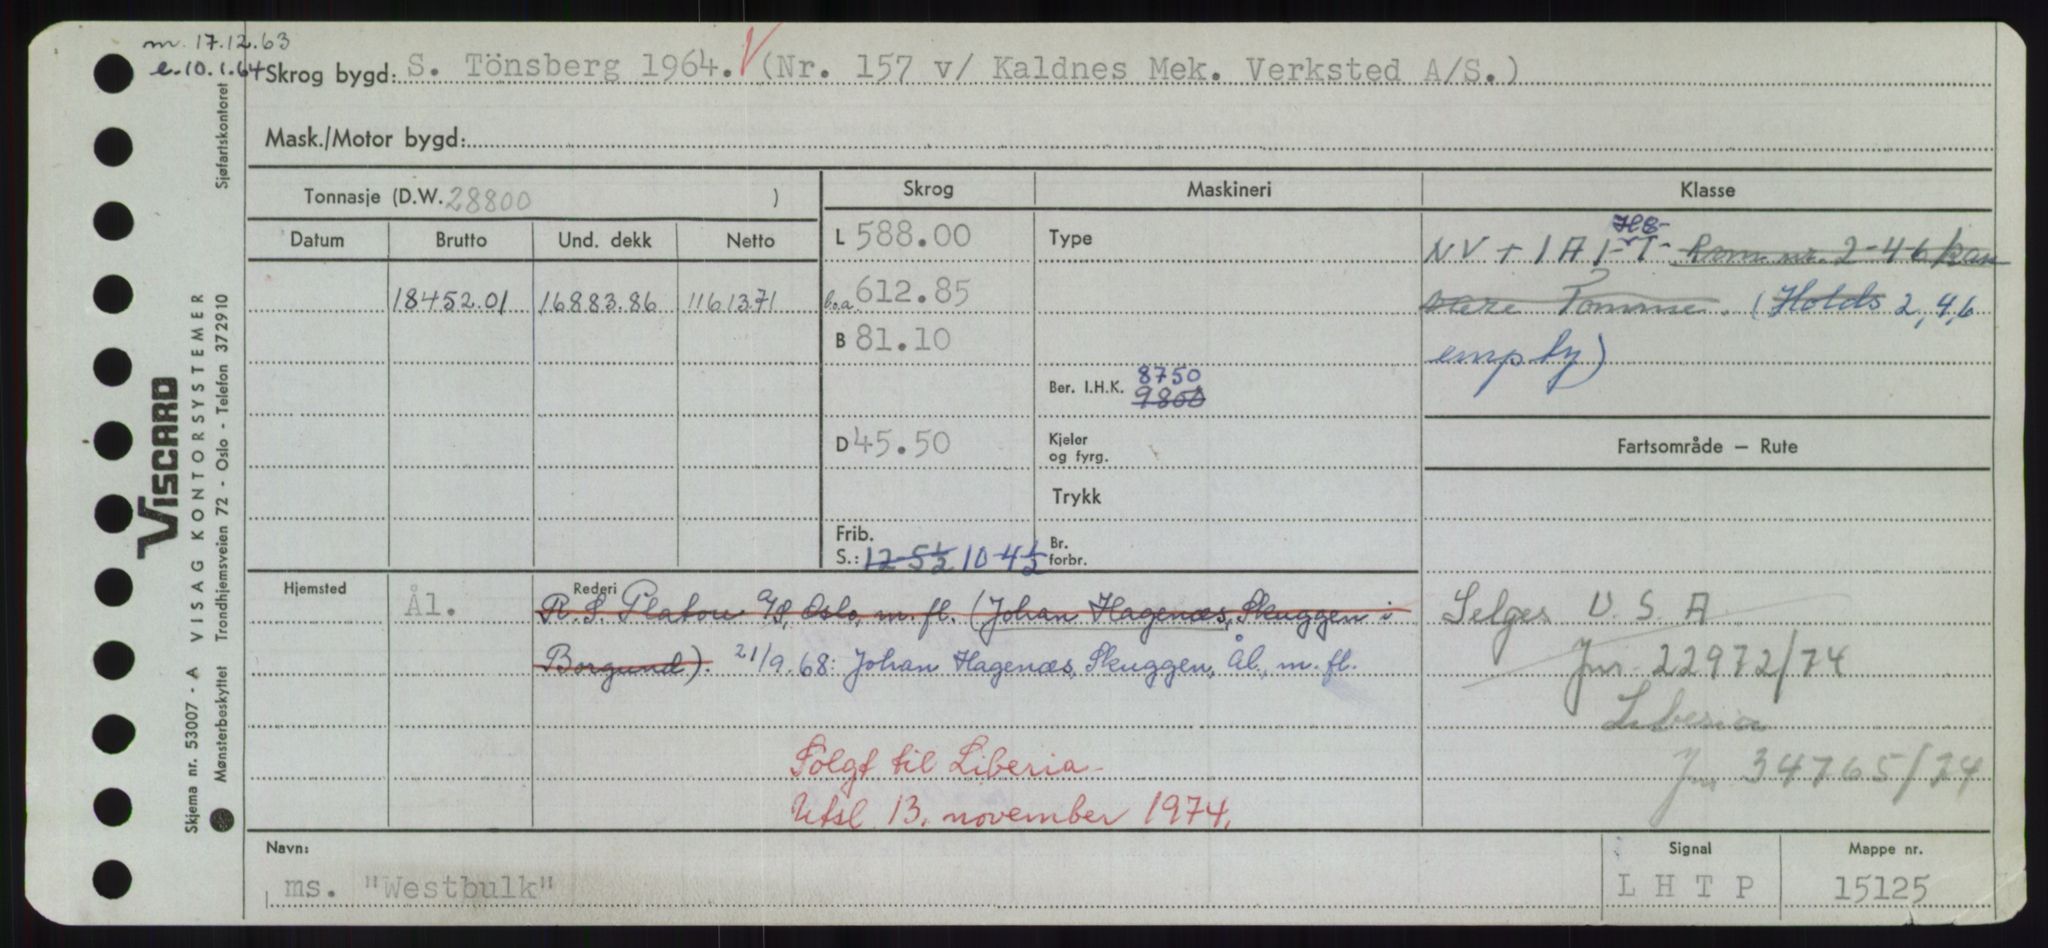 m. 17.12.63
e. 10.1.64 Skrog bygd: S. Tönsberg 1964. V (Nr. 157 v/ Kaldnes Mek. Verksted A/S.)
Mask./Motor bygd:
Tonnasje (D.W. 28800 )
Skrog Maskineri Klasse
Datum Brutto Und. dekk Netto
L 588.00 Type
HB-
NV + 1A1 -"T"- Rom nr. 2-4-6 kan
18452.01 16883.86 11613.71
l.o.a. 612.85
være tomme. (Holds 2,4,6
B 81.10
empty)
Ber. I.H.K. 8750
9800
D 45.50 Kjeler
og fyrg.
Fartsområde — Rute
Trykk
Frib.
S.: 12-5½ 10-4½ Br.
forbr.
Hjemsted Ål.
Rederi
R. S. Platou A/S, Oslo, m. fl. (Johan Hagenæs, Skuggen i
Borgund). 21/9.68: Johan Hagenæs, Skuggen, Ål., m. fl.
Selges U.S.A
Jnr 22972/74
Liberia
Jnr 34765/74
Solgt til Liberia-
Utsl. 13. november 1974.
Navn: ms. "Westbulk"
Signal LHTP
Mappe nr. 15125
VISCARD
Skjema nr. 53007 - A VISAG KONTORSYSTEMER
Mønsterbeskyttet Trondhjemsveien 72 - Oslo - Telefon 372910 Sjøfartskontoret